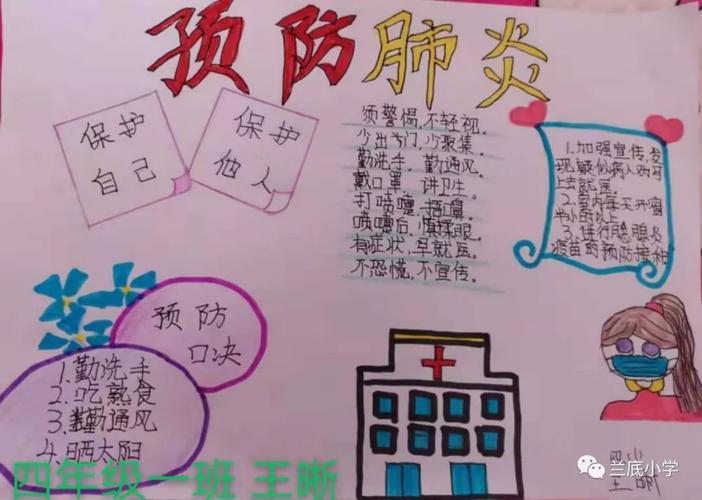 预防肺炎
保护
自己
保护
他人
须警惕,不轻视。
少出门,少聚集。
勤洗手,勤通风。
戴口罩,讲卫生。
打喷嚏,捂口鼻。
喷嚏后,慎揉眼。
有症状,早就医。
不恐慌,不宣传。
1.加强宣传,发
现疑似病人欢可
上去就医。
2.室内每天开窗
半小时以上
疫苗的预防接种
预防
口决
1.勤洗手
2.吃熟食
3.勤通风
4.晒太阳
四年级一班 王晰
兰底小学